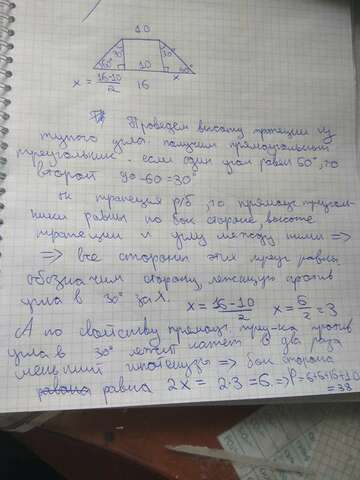 10
30° 30°
60° 10 60°
x = 16-10 16 x
2
Проведем высоту трапеции из
тупого угла получим прямоугольный
треугольник. если один угол равен 60°, то
второй 90-60=30°
трапеция р/б, то прямоуг. треуголь-
ники равны по бок стороне, высоте
трапеции и углу между ними =>
=> все стороны этих треуг равны
обозначим сторону, лежащую против
угла в 30° за X. x = 16-10 x = 6 = 3
2 2
А по свойству прямоуг. треу-ка против
угла в 30° лежит катет в два раза
меньший гипотенузы => бок сторона
равна равна 2x = 2·3=6 => P=6+6+16+10
=38